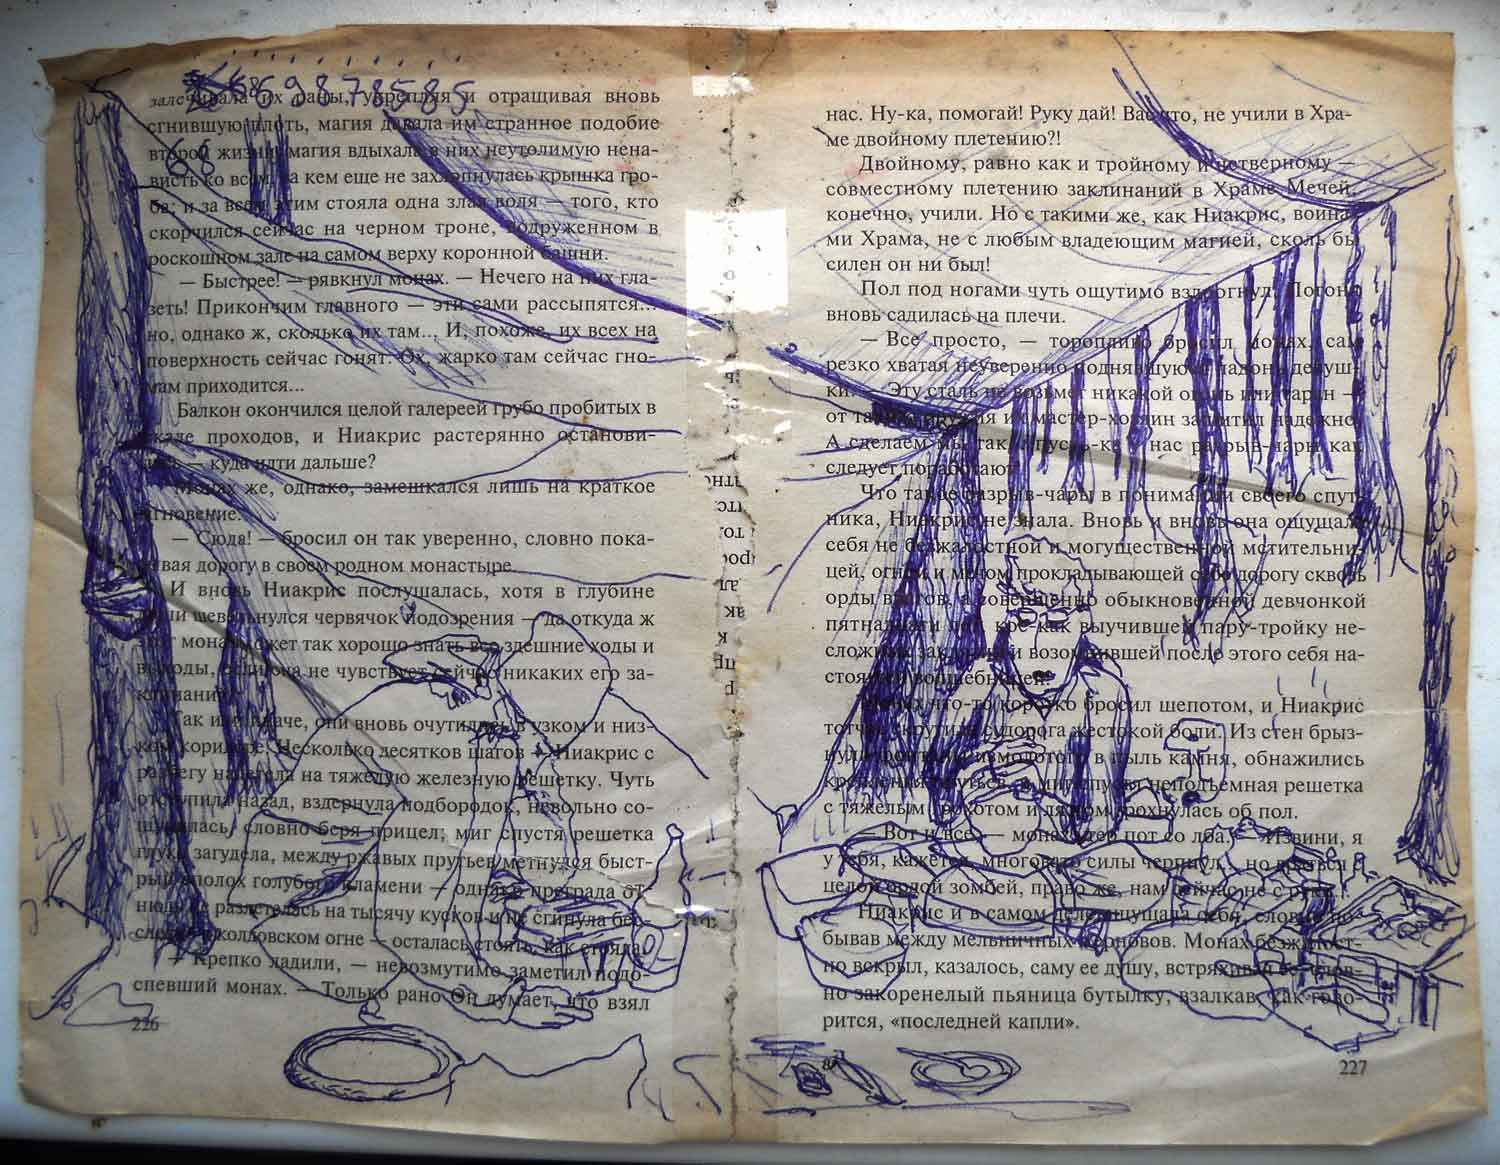 698 78585
68
залечивала их раны, укрепляя и отращивая вновь
сгнившую плоть, магия давала им странное подобие
второй жизни, магия вдыхала в них неутолимую нена-
висть ко всем, за кем еще не захлопнулась крышка гро-
ба; и за всем этим стояла одна злая воля — того, кто
скорчился сейчас на черном троне, водруженном в
роскошном зале на самом верху коронной башни.
— Быстрее! — рявкнул монах. — Нечего на них гла-
зеть! Прикончим главного — эти сами рассыпятся...
но, однако ж, сколько их там... И, похоже, их всех на
поверхность сейчас гонят. Ох, жарко там сейчас гно-
мам приходится...
Балкон окончился целой галереей грубо пробитых в
скале проходов, и Ниакрис растерянно останови-
лась — куда идти дальше?
Монах же, однако, замешкался лишь на краткое
мгновение.
— Сюда! — бросил он так уверенно, словно пока-
зывая дорогу в своем родном монастыре.
И вновь Ниакрис послушалась, хотя в глубине
души шевельнулся червячок подозрения — да откуда ж
этот монах может так хорошо знать все здешние ходы и
выходы, если она не чувствует сейчас никаких его за-
клинаний?
Так или иначе, они вновь очутились в узком и низ-
ком коридоре. Несколько десятков шагов — Ниакрис с
разбегу налетела на тяжелую железную решетку. Чуть
отступила назад, вздернула подбородок, невольно со-
щурилась, словно беря прицел; миг спустя решетка
глухо загудела, между ржавых прутьев метнулся быст-
рый сполох голубого пламени — однако преграда от-
нюдь не разлетелась на тысячу кусков и не сгинула бес-
следно в колдовском огне — осталась стоять, как стояла.
— Крепко ладили, — невозмутимо заметил подо-
спевший монах. — Только рано Он думает, что взял
226
нас. Ну-ка, помогай! Руку дай! Вас что, не учили в Хра-
ме двойному плетению?!
Двойному, равно как и тройному и четверному —
совместному плетению заклинаний в Храме Мечей,
конечно, учили. Но с такими же, как Ниакрис, воина-
ми Храма, не с любым владеющим магией, сколь бы
силен он ни был!
Пол под ногами чуть ощутимо вздрогнул. Погоня
вновь садилась на плечи.
— Все просто, — торопливо бросил монах, сам
резко хватая неуверенно поднявшуюся ладонь девуш-
ки. — Эту сталь не возьмет никакой огонь или таран —
от таких оружия их мастер-хозяин защитил надежно.
А сделаем мы так: пусть-ка у нас разрыв-чары как
следует поработают!
Что такое разрыв-чары в понимании своего спут-
ника, Ниакрис не знала. Вновь и вновь она ощущала
себя не безжалостной и могущественной мстительни-
цей, огнем и мечом прокладывающей себе дорогу сквозь
орды врагов, а совершенно обыкновенной девчонкой
пятнадцати лет, кое-как выучившей пару-тройку не-
сложных заклятий и возомнившей после этого себя на-
стоящей волшебницей.
Монах что-то коротко бросил шепотом, и Ниакрис
тотчас скрутила судорога жестокой боли. Из стен брыз-
нули фонтаны измолотого в пыль камня, обнажились
крепления прутьев, и миг спустя неподъемная решетка
с тяжелым грохотом и лязгом грохнулась об пол.
— Вот и все, — монах утер пот со лба. — Извини, я
у тебя, кажется, многовато силы черпнул, но драться с
целой ордой зомбей, право же, нам сейчас не с руки.
Ниакрис и в самом деле ощущала себя, словно по-
бывав между мельничных жерновов. Монах безжалост-
но вскрыл, казалось, саму ее душу, встряхивая ее, слов-
но закоренелый пьяница бутылку, взалкав, как гово-
рится, «последней капли».
227